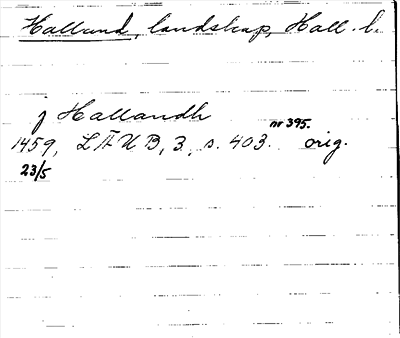 Halland, landskap, Hall. l.
j Hallandh
1459, LÄUB, 3, s. 403. nr 395. orig.
23/5